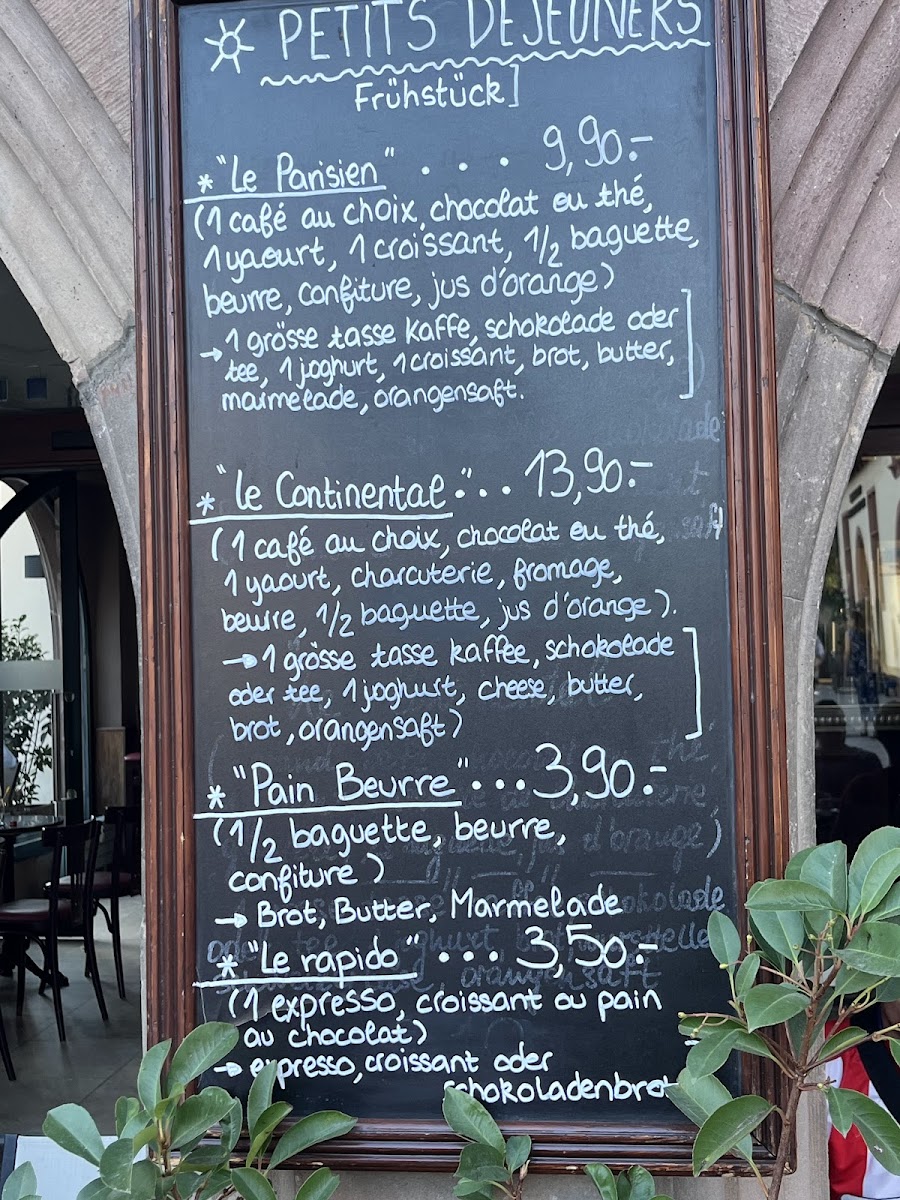 PETITS DEJEUNERS
Frühstück]
* "Le Parisien" . . . 9,90.-
(1 café au choix, chocolat ou thé,
1 yaourt, 1 croissant, 1/2 baguette,
beurre, confiture, jus d'orange)
→ 1 grösse tasse kaffe, schokolade oder
tee, 1 joghurt, 1 croissant, brot, butter,
marmelade, orangensaft.
* "Le Continental" . . . 13,90.-
(1 café au choix, chocolat ou thé,
1 yaourt, charcuterie, fromage,
beurre, 1/2 baguette, jus d'orange).
→ 1 grösse tasse kaffee, schokolade
oder tee, 1 joghurt, cheese, butter,
brot, orangensaft)
* "Pain Beurre" . . . 3,90.-
(1/2 baguette, beurre,
confiture)
→ Brot, Butter, Marmelade
* "Le rapido" . . . 3,50.-
(1 expresso, croissant ou pain
au chocolat)
→ expresso, croissant oder
schokoladenbrot